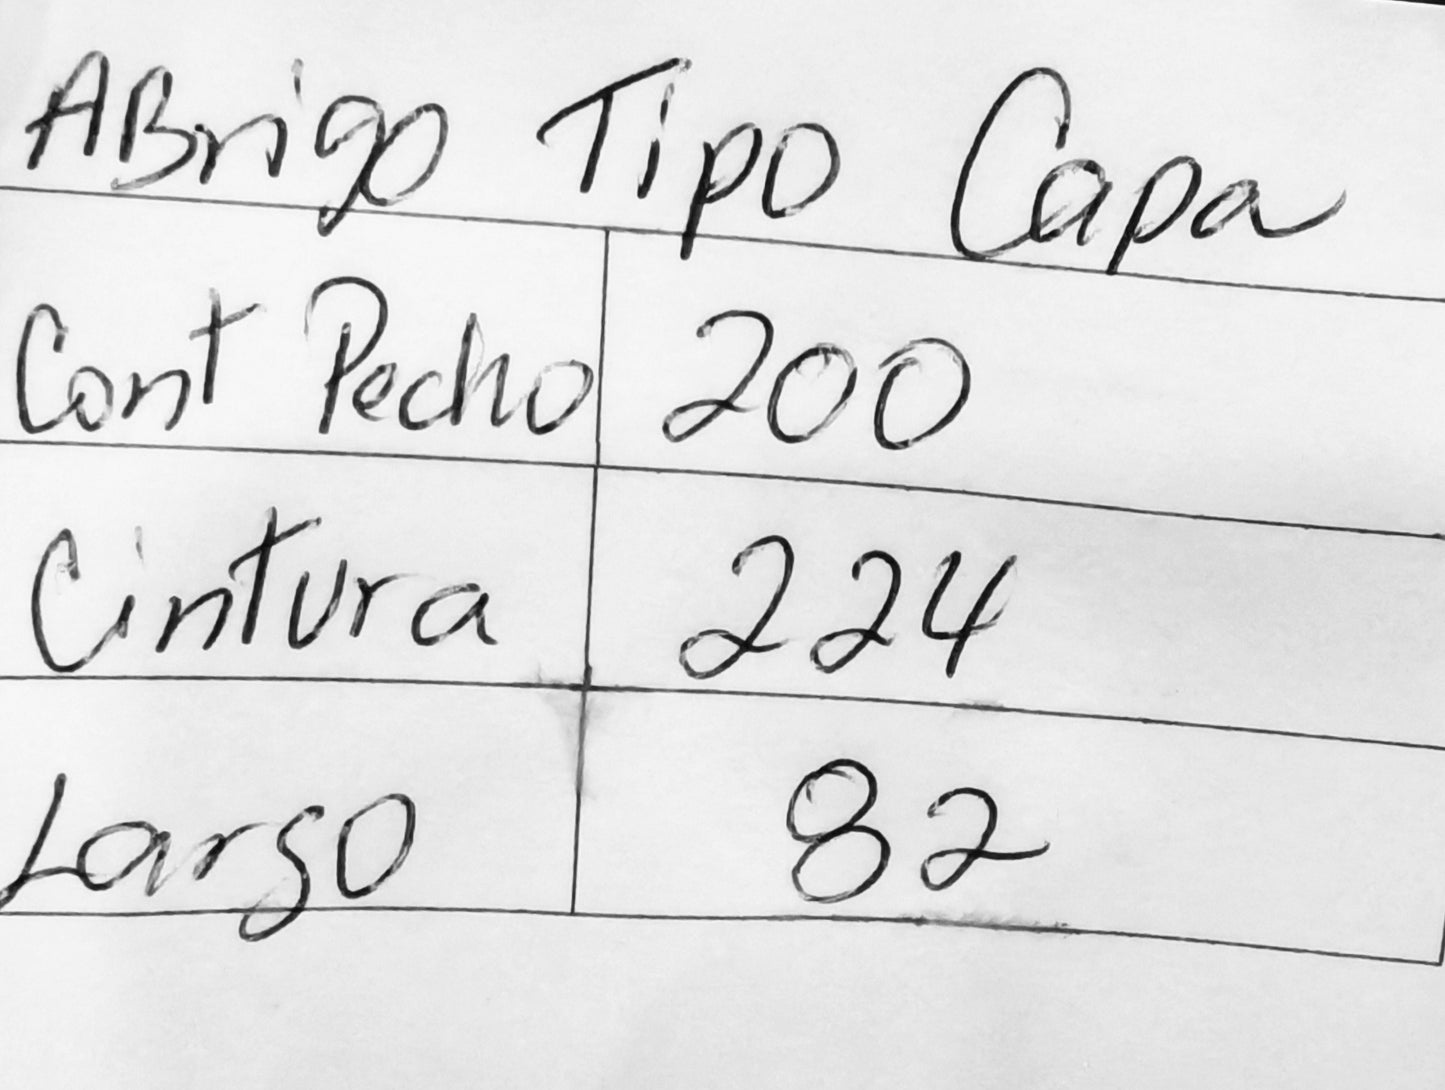 ABrigo Tipo Capa
Cont Pecho 200
Cintura 224
Largo 82